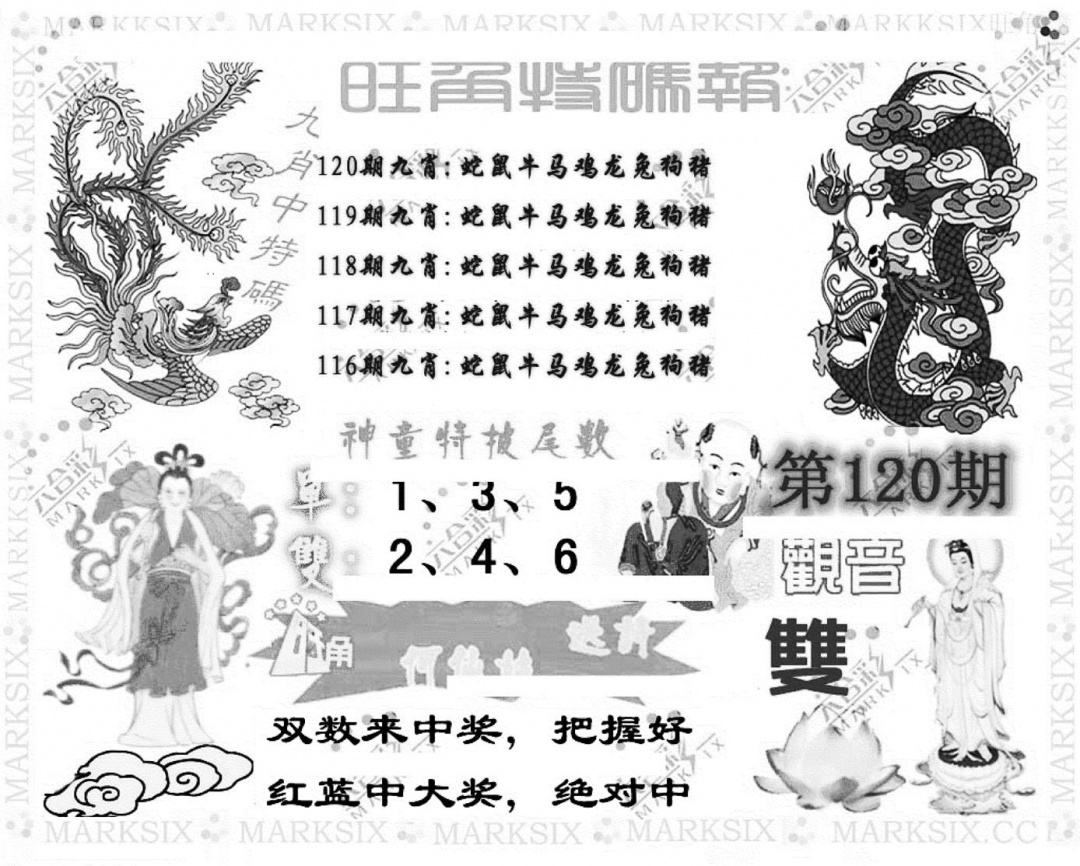 MARKSIX MARKSIX MARKSIX MARKSIX
旺角特碼報
九肖中特碼
120期九肖: 蛇鼠牛马鸡龙兔狗猪
119期九肖: 蛇鼠牛马鸡龙兔狗猪
118期九肖: 蛇鼠牛马鸡龙兔狗猪
117期九肖: 蛇鼠牛马鸡龙兔狗猪
116期九肖: 蛇鼠牛马鸡龙兔狗猪
神童特披尾數
單: 1、3、5
雙: 2、4、6
第120期
觀音
雙
双数来中奖，把握好
红蓝中大奖，绝对中
MARKSIX MARKSIX MARKSIX MARKSIX MARKSIX.CC